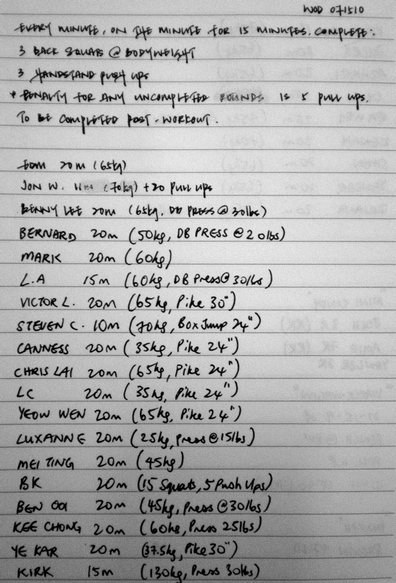 WOD 071510
EVERY MINUTE, ON THE MINUTE FOR 15 MINUTES, COMPLETE:
3 BACK SQUATS @ BODYWEIGHT
3 HANDSTAND PUSH UPS
* PENALTY FOR ANY UNCOMPLETED ROUNDS IS 5 PULL UPS.
TO BE COMPLETED POST-WORKOUT.
20m (65kg)
JON W. 11m (70kg) + 20 PULL UPS
BENNY LEE 20m (65kg, DB PRESS @ 30lbs)
BERNARD 20m (50kg, DB PRESS @ 20lbs)
MARK 20m (60kg)
L.A 15m (60kg, DB Press @ 30lbs)
VICTOR L. 20m (65kg, Pike 30")
STEVEN C. 10m (70kg, Box Jump 24")
CANNESS 20m (35kg, Pike 24")
CHRIS LAI 20m (65kg, Pike 24")
LC 20m (35kg, Pike 24")
YEOW WEN 20m (65kg, Pike 24")
LUXANNE 20m (25kg, Press @ 15lbs)
MEI TING 20m (45kg)
BK 20m (15 Squats, 5 Push Ups)
BEN OOI 20m (45kg, Press @ 30lbs)
KEE CHONG 20m (60kg, Press 25lbs)
YE KAR 20m (37.5kg, Pike 30")
KIRK 15m (130kg, Press 30lbs)